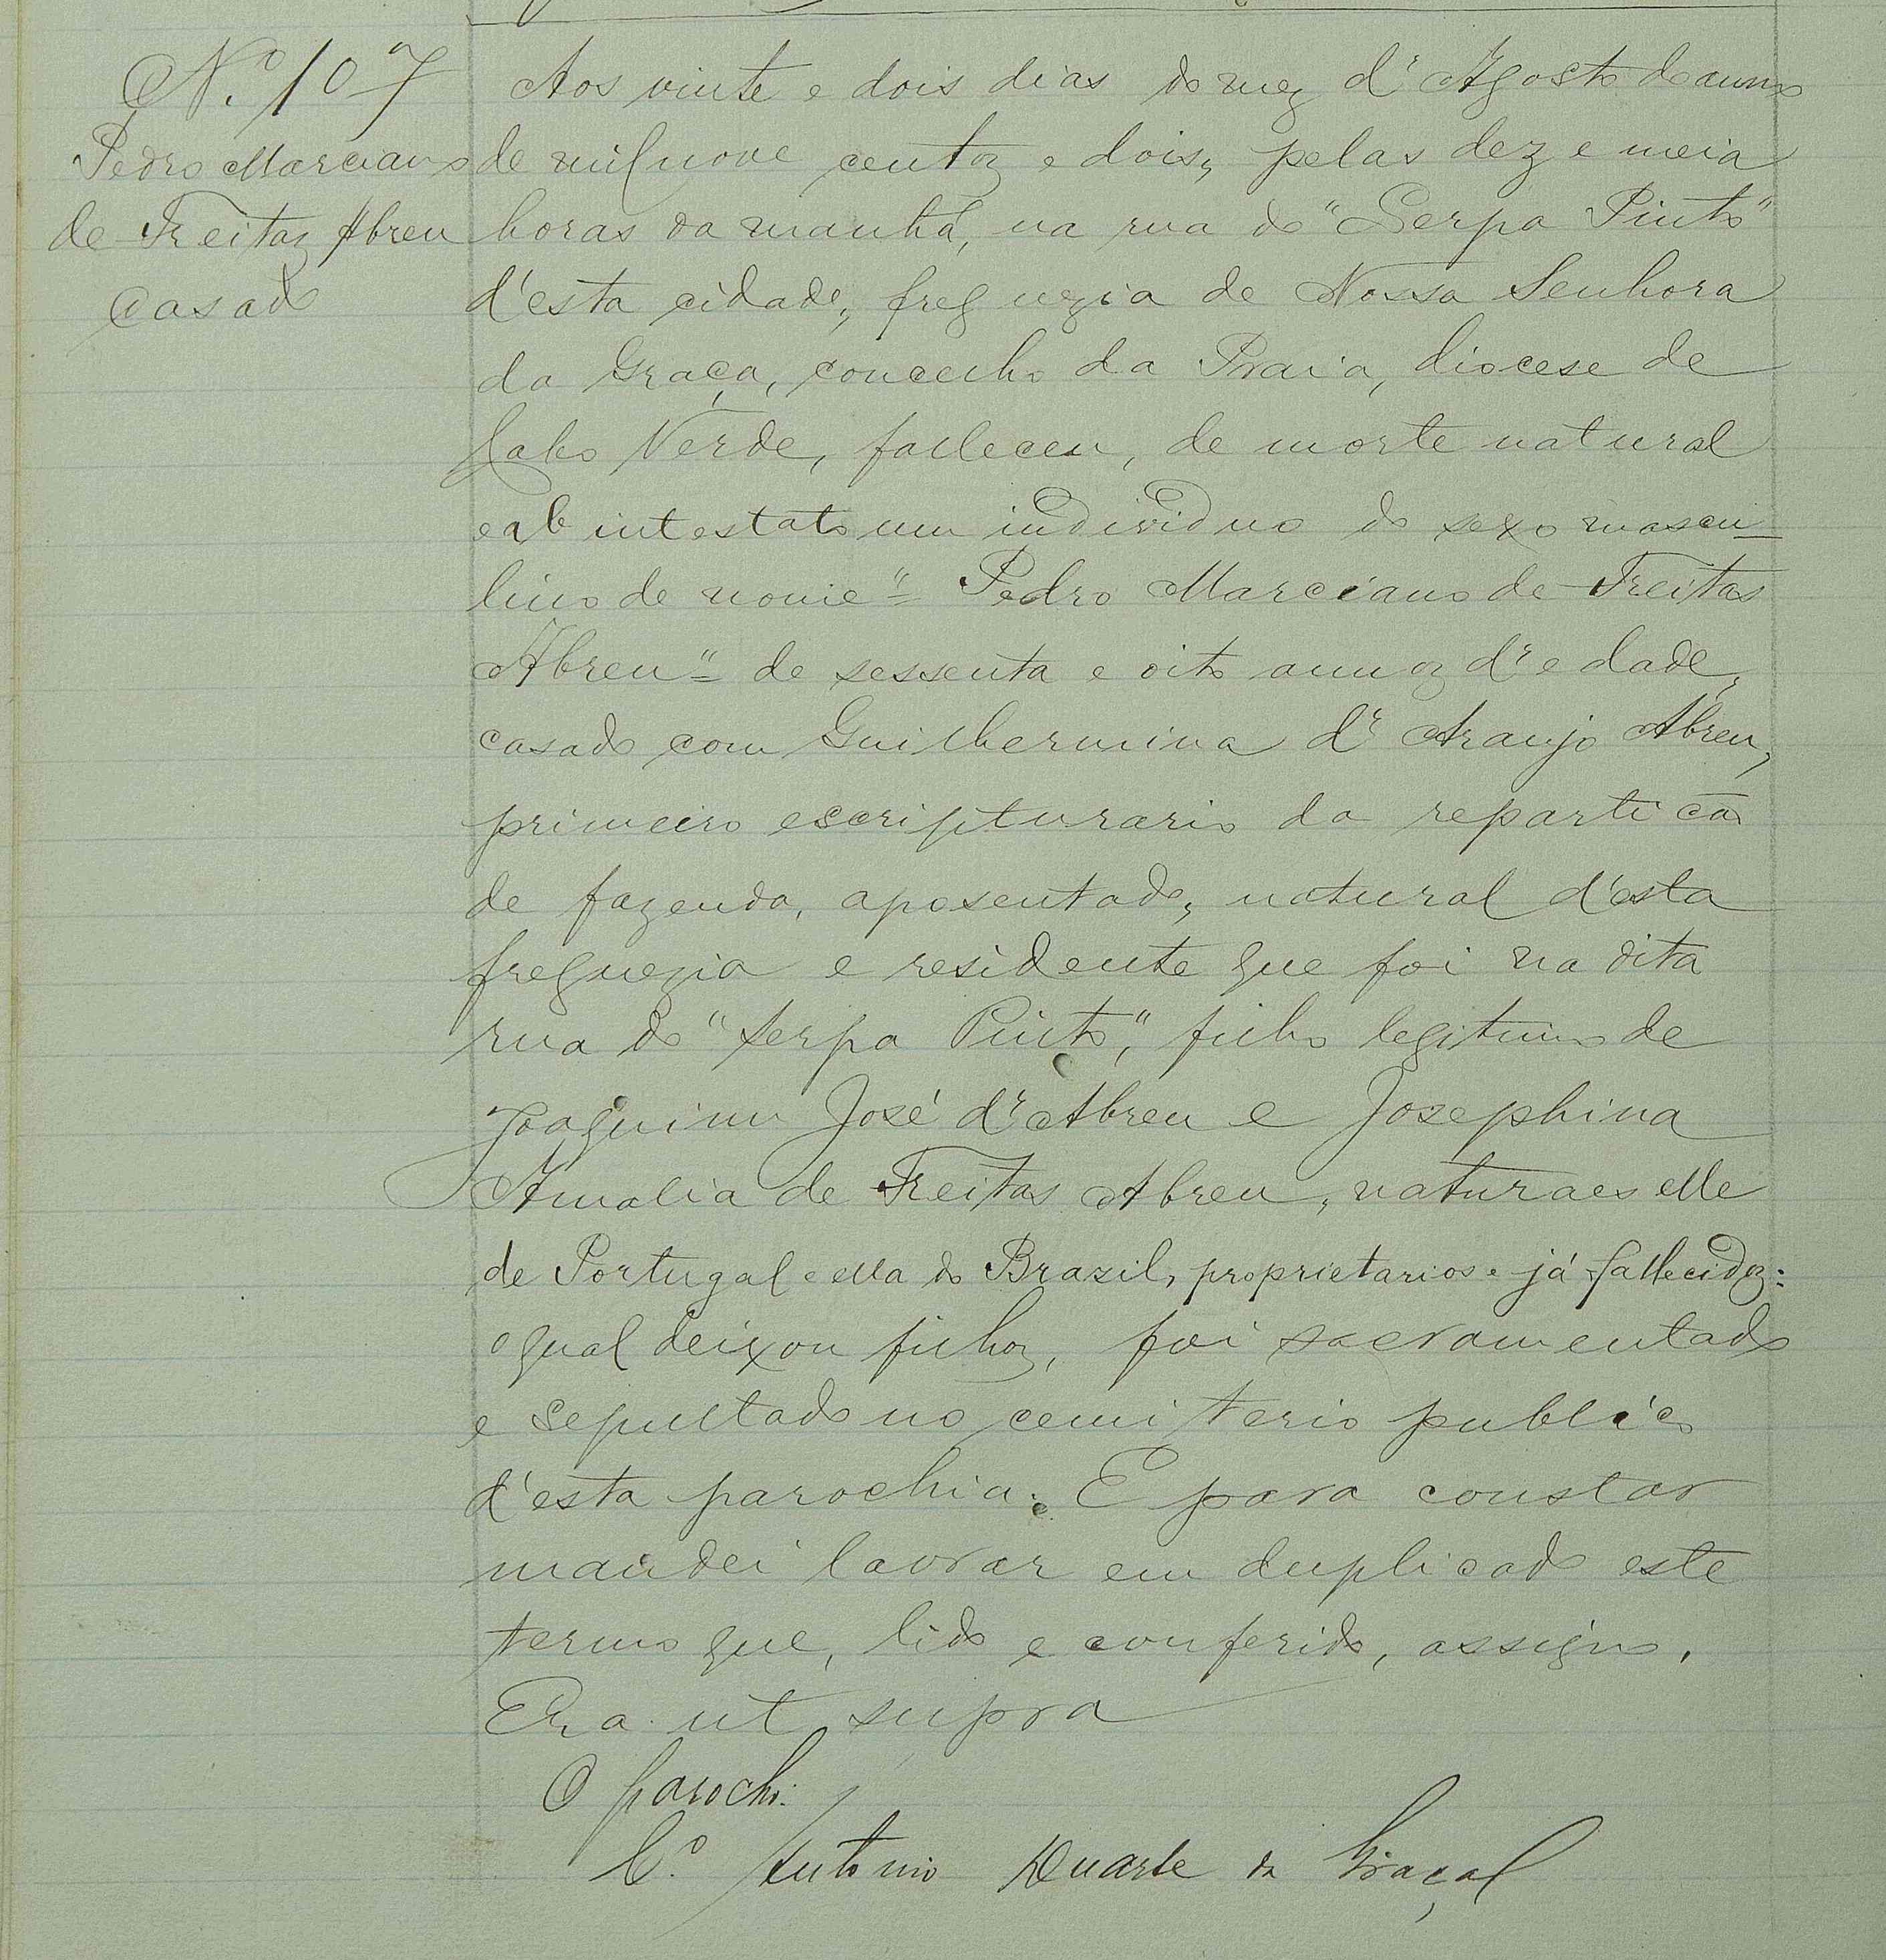 Nº 107
Pedro Marciano
de Freitaz Abreu
casado
Aos vinte e dois dias do mez d'Agosto do anno
de mil nove centoz e dois, pelas dez e meia
horas da manhã, na rua do "Serpa Pinto"
d'esta cidade, freguezia de Nossa Senhora
da Graça, concelho da Praia, diocese de
Cabo Verde, falleceu, de morte natural
e ab intestato um individuo do sexo mascu=
lino de nome "= Pedro Marciano de Freitas
Abreu "= de sessenta e oito annoz d'edade,
casado com Guilhermina d'Araujo Abreu,
primeiro escripturario da repartição
de fazenda, aposentado, natural d'esta
freguezia e residente que foi na dita
rua do "Serpa Pinto", filho legitimo de
Joaquim José d'Abreu e Josephina
Amalia de Freitas Abreu, naturaes elle
de Portugal e ella do Brazil, proprietarios e já fallecidoz:
o qual deixou filhoz, foi sacramentado
e sepultado no cemiterio publico
d'esta parochia. E para constar
mandei lavrar em duplicado este
termo que, lido e conferido, assigno.
Era ut supra
O parocho.
Cº. Antonio Duarte da Graça